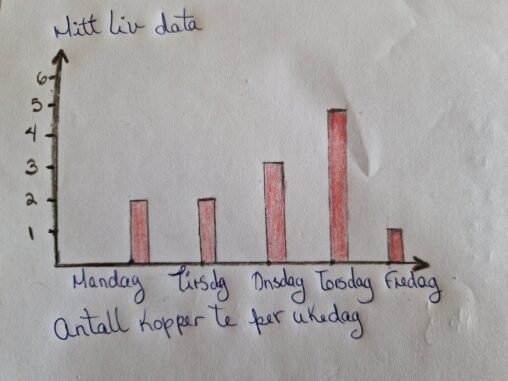 Mitt liv data
6
5
4
3
2
1
Mandag Tirsdg Onsdag Torsdag Fredag
Antall kopper te per ukedag